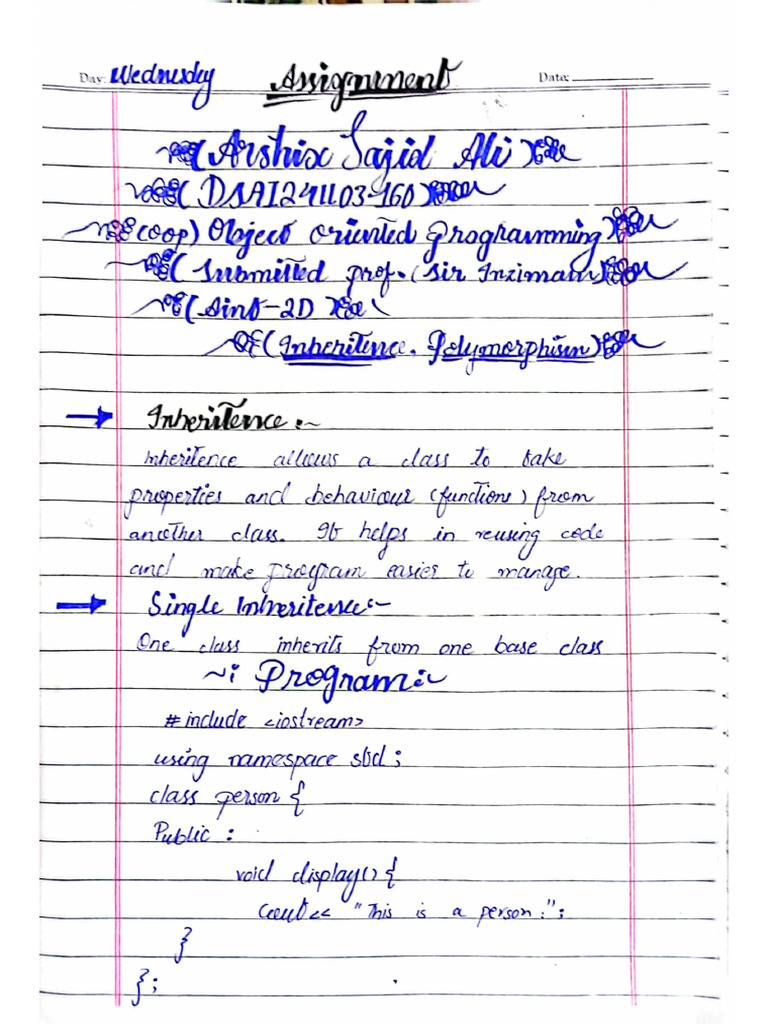 Day: Wednesday Assignment Date:
(Arshix Sajid Ali)
(DSAI241103-160)
(oop) Object oriented programming)
(Submitted prof. (Sir Inzimam)
(Sint-2D)
(Inheritence. Polymorphism)
Inheritence :~
Inheritence allows a class to take
properties and behaviour (functions) from
another class. It helps in reusing code
and make program easier to manage.
Single Inheritence:~
One class inherits from one base class
~: Program:~
#include <iostream>
using namespace std;
class person {
Public :
void display() {
cout<< "This is a person:";
}
};